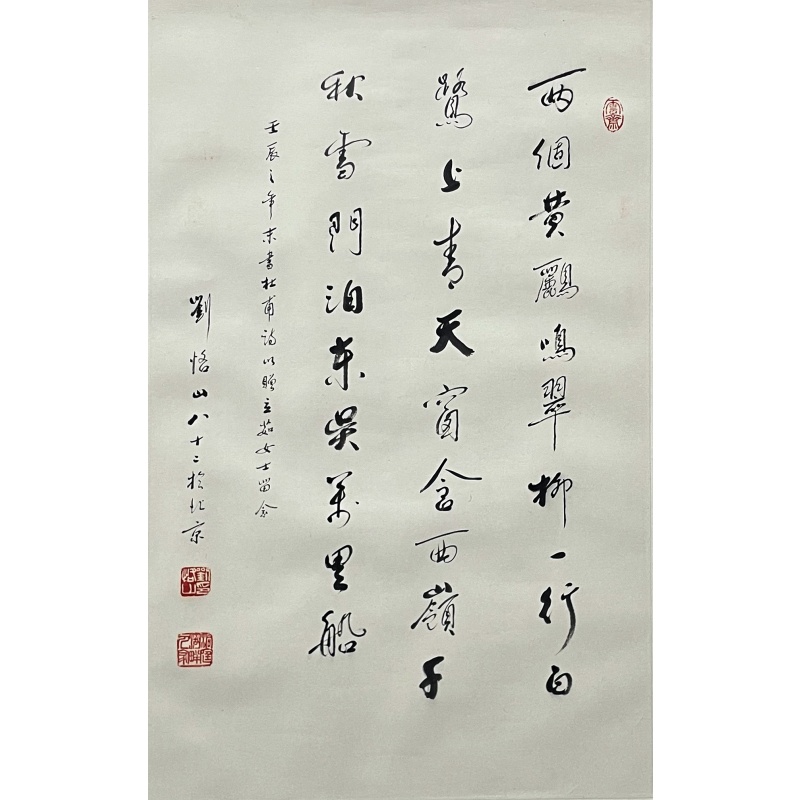 兩個黄鸝鳴翠柳一行白
鷺上青天窗含西嶺千
秋雪門泊東吴萬里船
壬辰之年末書杜甫詩以贈立茹女士留念
劉恪山八十二於北京